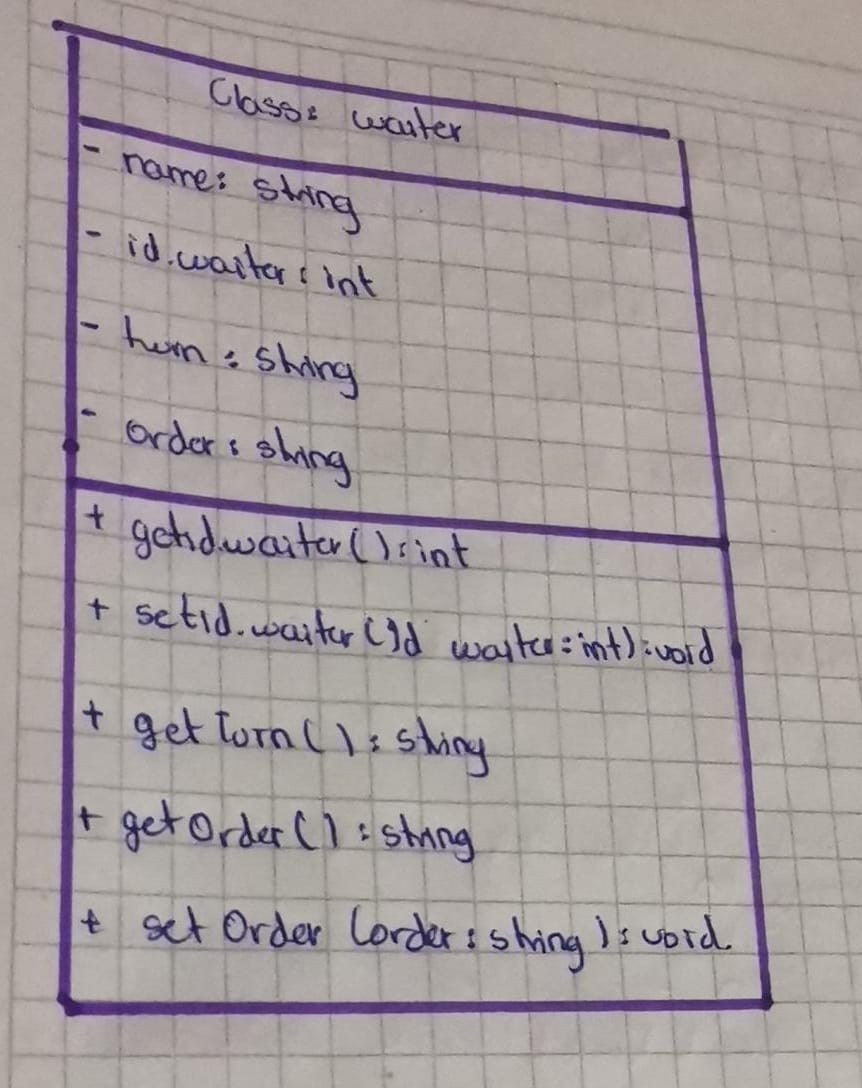 Class: waiter
- name: string
- id.waiter: int
- turn: string
- order: string
+ getId.waiter(): int
+ setId.waiter(Id waiter: int): void
+ get Turn(): string
+ getOrder(): string
+ set Order (order: string): void.